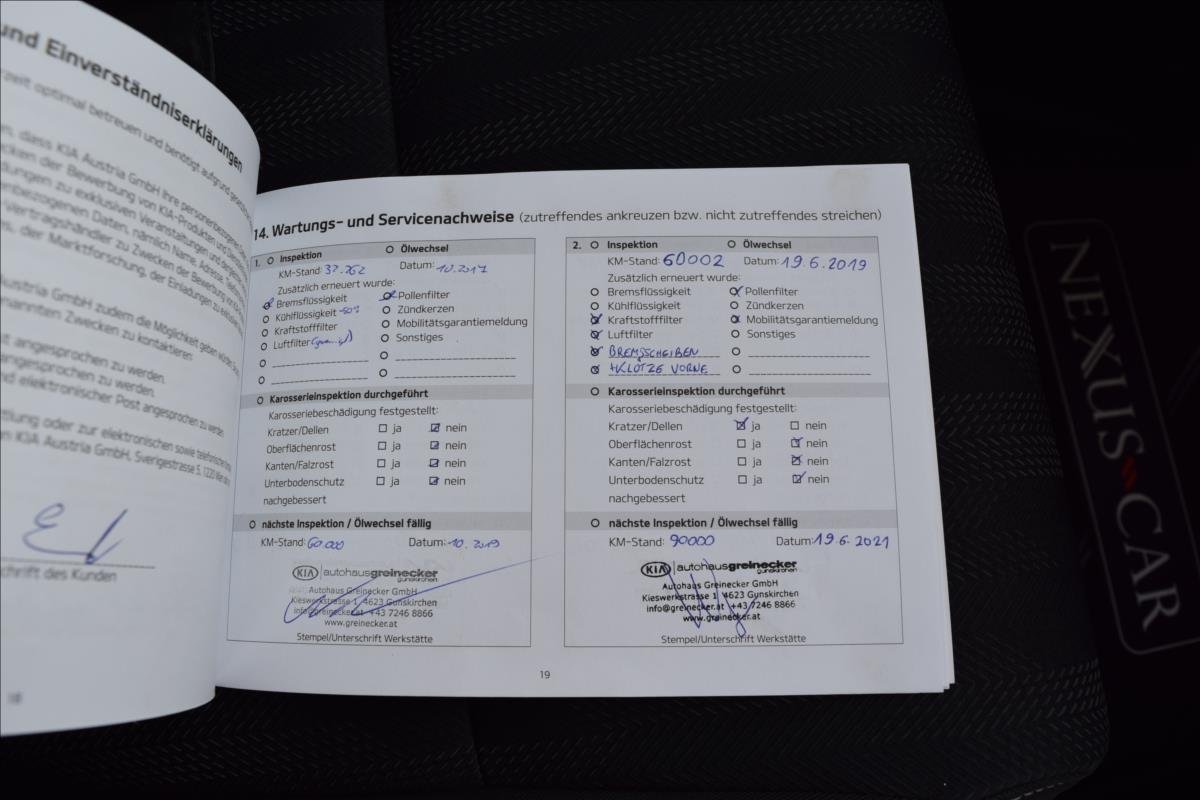 und Einverständniserklärungen
optimal betreuen und benötigt aufgrund
dass KIA Austria GmbH Ihre personenbezogenen
der Bewerbung von KIA-Produkten und
zu exklusiven Veranstaltungen und
Daten, nämlich Name, Adresse,
Vertragshändler zu Zwecken der Bewerbung von
der Marktforschung, der Einladungen zu exklusiven
Austria GmbH zudem die Möglichkeit geben
Zwecken zu kontaktieren:
angesprochen zu werden.
angesprochen zu werden.
elektronischer Post angesprochen zu werden.
oder zur elektronischen sowie telefonischen
KIA Austria GmbH, Sverigestrasse 5, 1220 Wien
des Kunden
18
14. Wartungs- und Servicenachweise (zutreffendes ankreuzen bzw. nicht zutreffendes streichen)
1. Inspektion Ölwechsel
KM-Stand: Datum: 10.2017
Zusätzlich erneuert wurde:
Bremsflüssigkeit Pollenfilter
Kühlflüssigkeit -50° Zündkerzen
Kraftstofffilter Mobilitätsgarantiemeldung
Luftfilter Sonstiges
Karosserieinspektion durchgeführt
Karosseriebeschädigung festgestellt:
Kratzer/Dellen ja nein
Oberflächenrost ja nein
Kanten/Falzrost ja nein
Unterbodenschutz ja nein
nachgebessert
nächste Inspektion / Ölwechsel fällig
KM-Stand: 60.000 Datum: 10.2019
KIA autohausgreinecker
gunskirchen
Autohaus Greinecker GmbH
Kieswerkstrasse 1, 4623 Gunskirchen
info@greinecker.at +43 7246 8866
www.greinecker.at
Stempel/Unterschrift Werkstätte
2. Inspektion Ölwechsel
KM-Stand: 60002 Datum: 19.6.2019
Zusätzlich erneuert wurde:
Bremsflüssigkeit Pollenfilter
Kühlflüssigkeit Zündkerzen
Kraftstofffilter Mobilitätsgarantiemeldung
Luftfilter Sonstiges
BREMSSCHEIBEN
+KLÖTZE VORNE
Karosserieinspektion durchgeführt
Karosseriebeschädigung festgestellt:
Kratzer/Dellen ja nein
Oberflächenrost ja nein
Kanten/Falzrost ja nein
Unterbodenschutz ja nein
nachgebessert
nächste Inspektion / Ölwechsel fällig
KM-Stand: 90000 Datum: 19.6.2021
KIA autohausgreinecker
gunskirchen
Autohaus Greinecker GmbH
Kieswerkstrasse 1, 4623 Gunskirchen
info@greinecker.at +43 7246 8866
www.greinecker.at
Stempel/Unterschrift Werkstätte
19
NEXXUS CAR